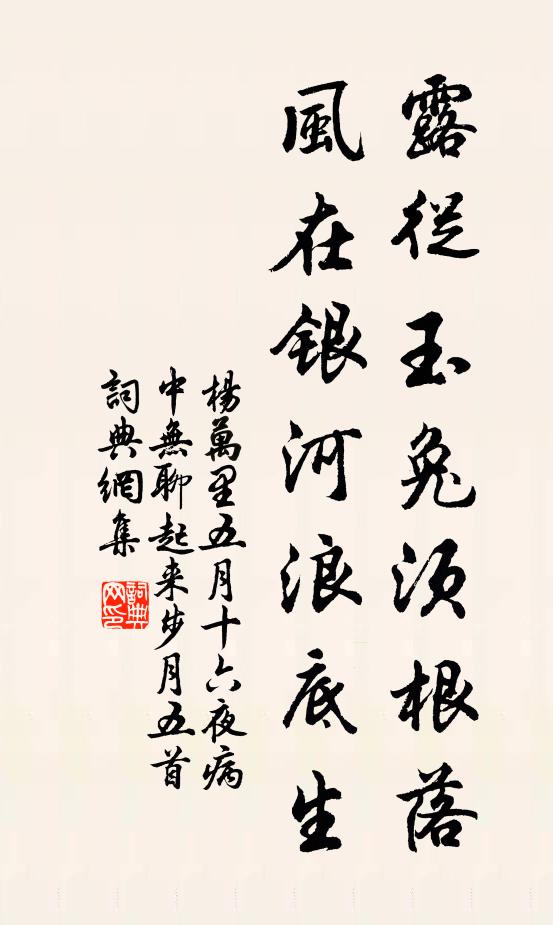 露從玉兔須根落
風在銀河浪底生
楊萬里五月十六夜病
中無聊起来步月五首
詞典網集
詞典
网印